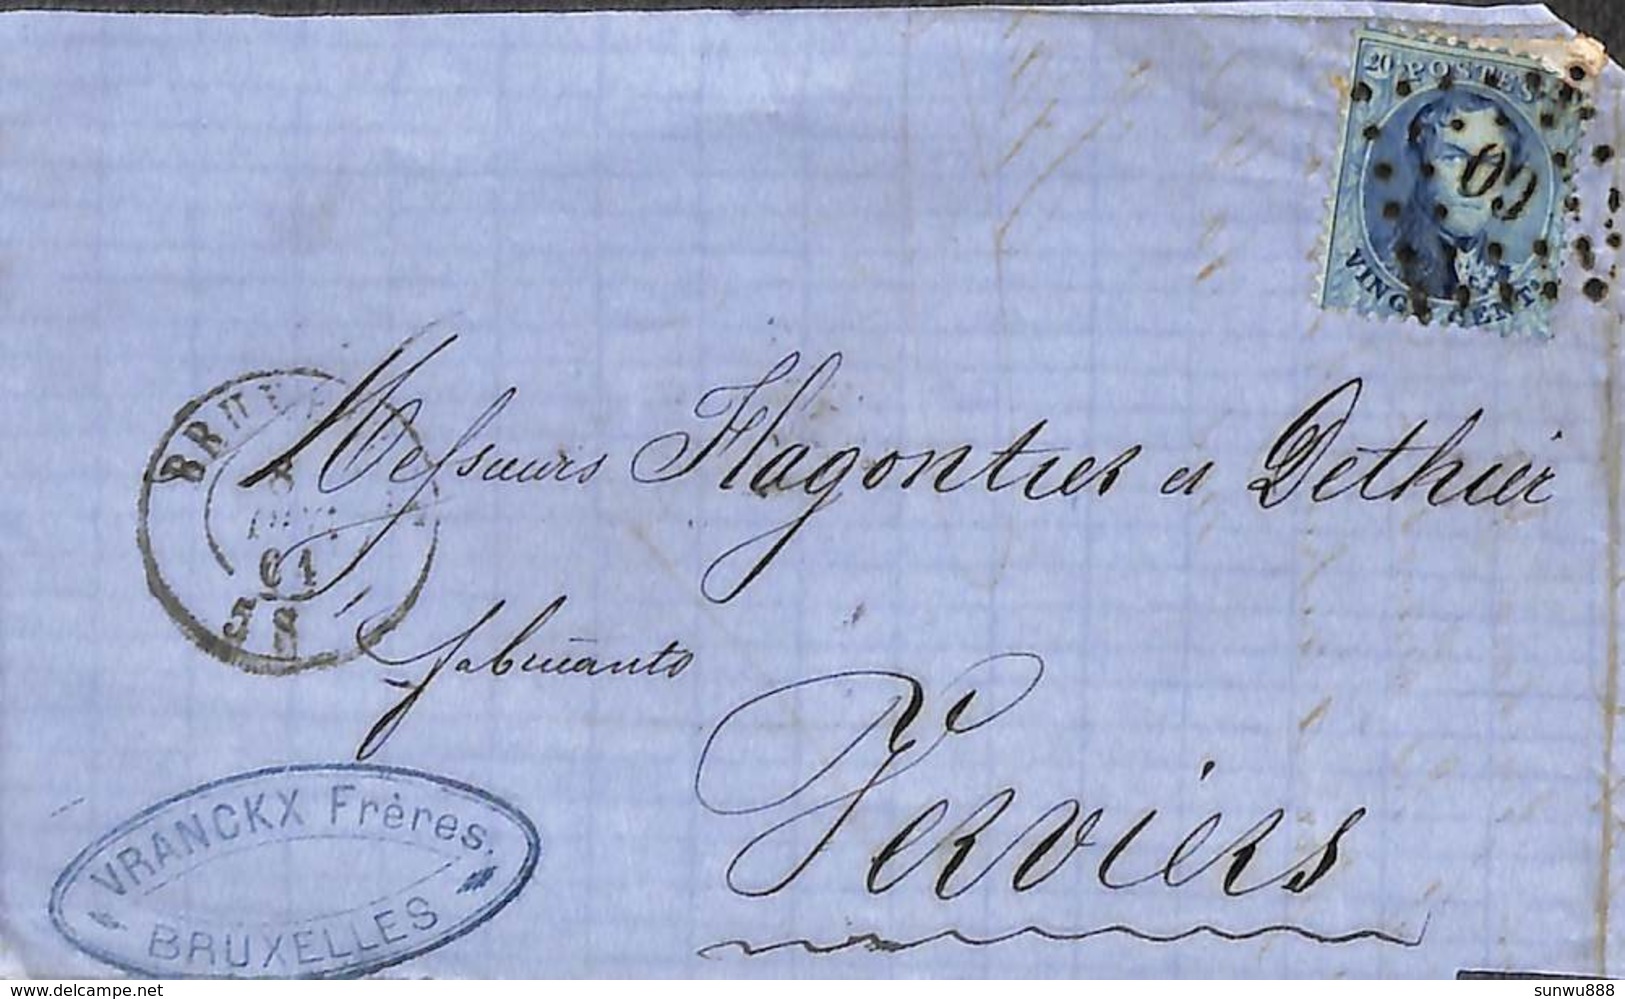 20 POSTES
60
VINGT CENTS
BRUXE
8
61
5 S
Messieurs Hagontier et Dethier
fabricants
Verviers
VRANCKX Frères.
BRUXELLES
www.delcampe.net
sunwu888